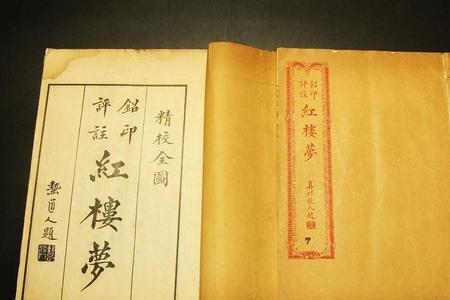 精校全圖
鉛印
評註
紅樓夢
蟄道人題
鉛印
評註
紅樓夢
7